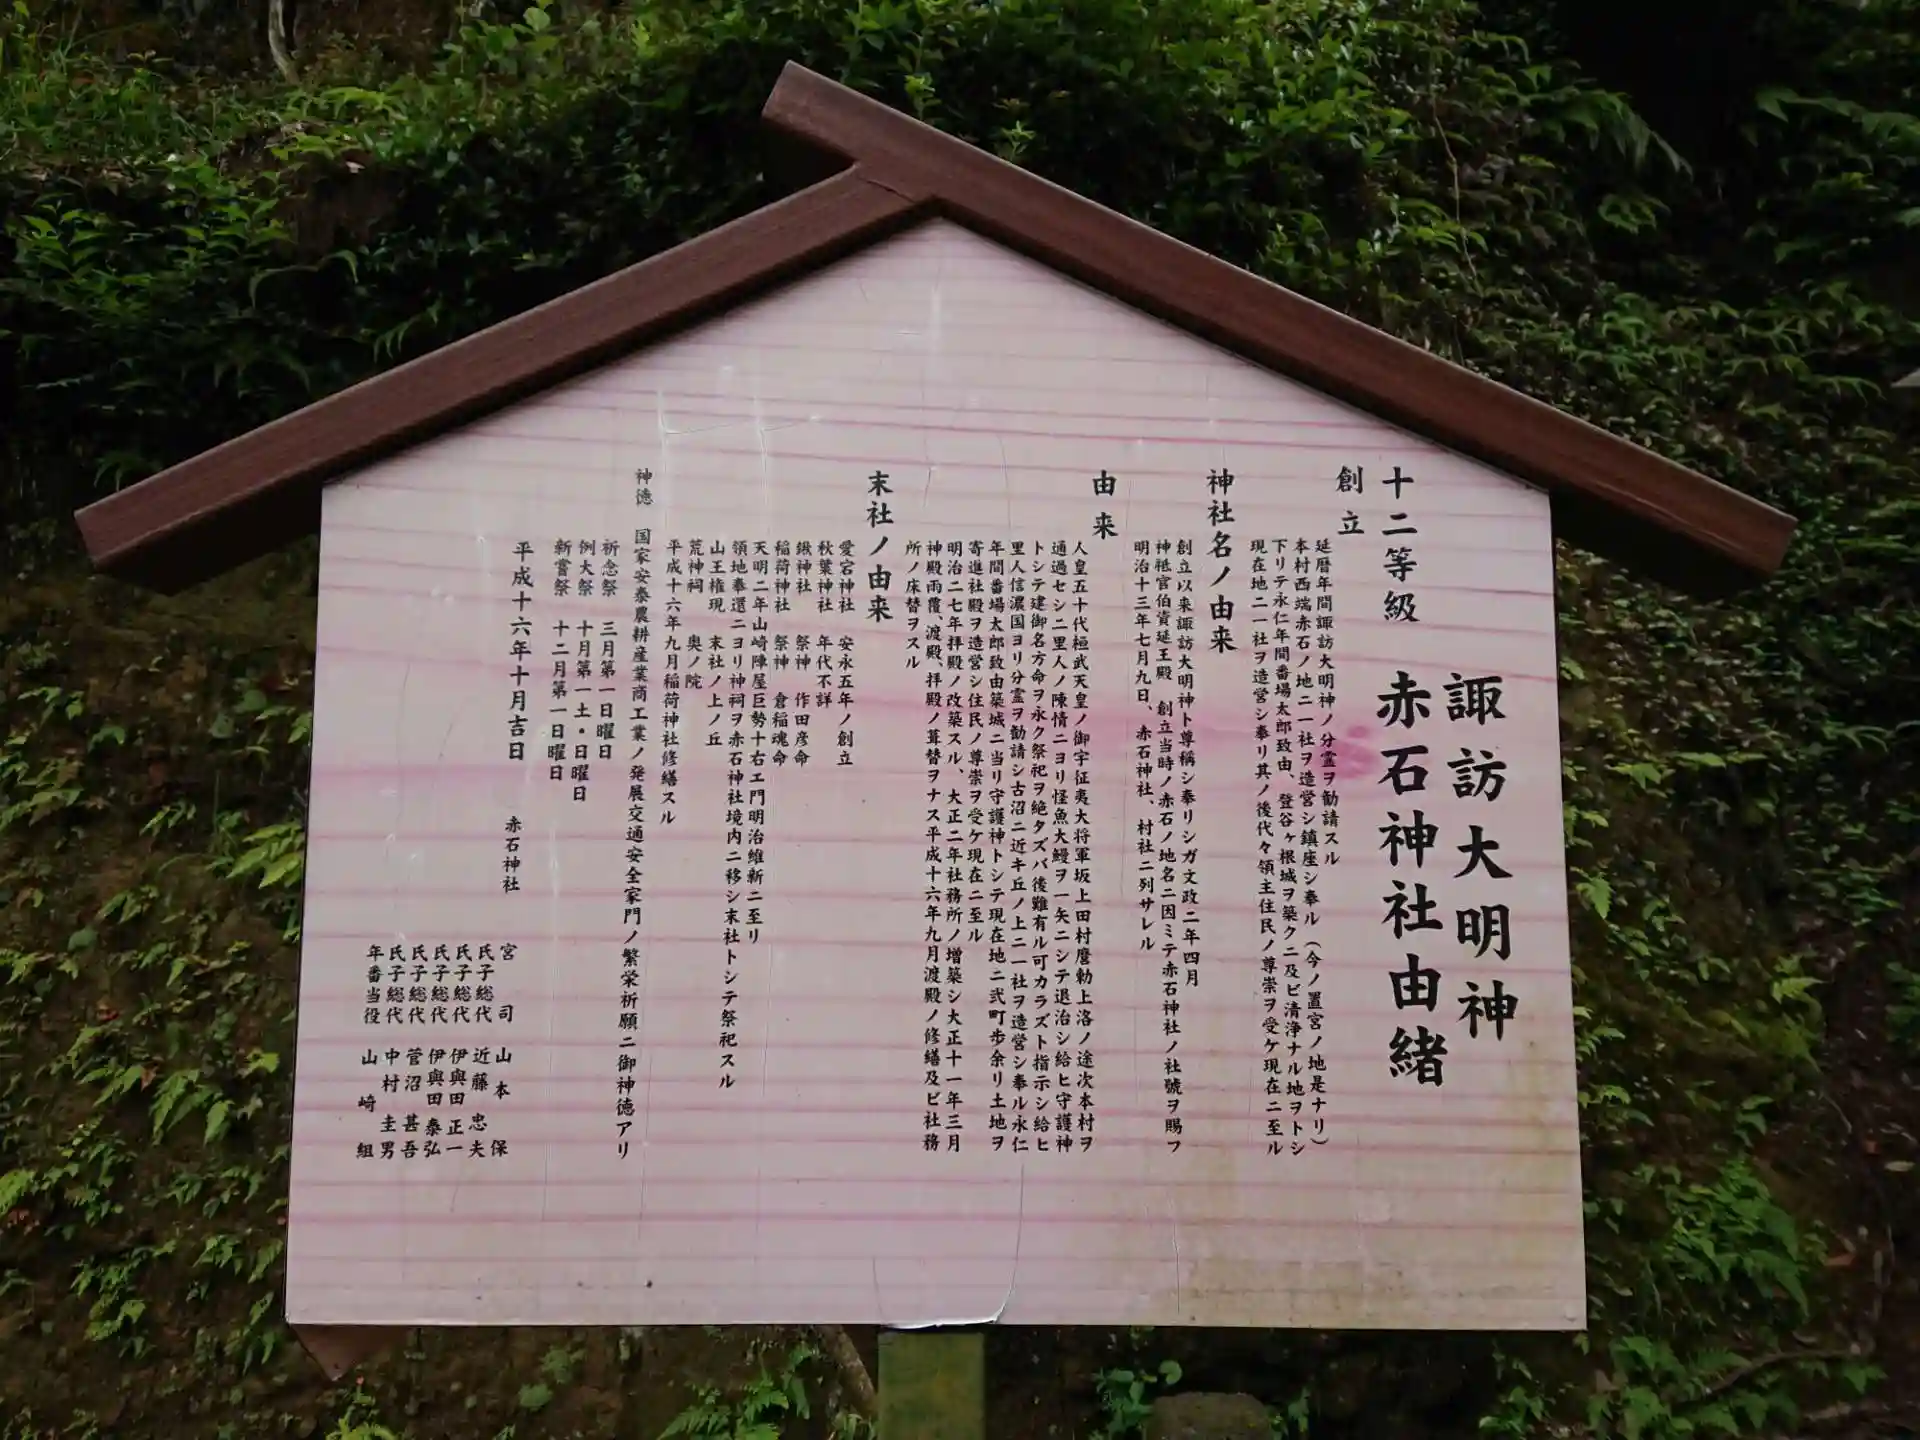 諏訪大明神
十二等級　赤石神社由緒
創立
延暦年間諏訪大明神ノ分霊ヲ勧請スル
本村西端赤石ノ地ニ一社ヲ造営シ鎮座シ奉ル（今ノ置宮ノ地是ナリ）
下リテ永仁年間番場太郎致由、登谷ヶ根城ヲ築クニ及ビ清浄ナル地ヲトシ
現在地ニ一社ヲ造営シ奉リ其ノ後代々領主住民ノ尊崇ヲ受ケ現在ニ至ル
神社名ノ由来
創立以来諏訪大明神ト尊稱シ奉リシガ文政二年四月
神祗官伯資延王殿　創立当時ノ赤石ノ地名ニ因ミテ赤石神社ノ社號ヲ賜フ
明治十三年七月九日、赤石神社、村社ニ列サレル
由来
人皇五十代桓武天皇ノ御宇征夷大将軍坂上田村麿勅上洛ノ途次本村ヲ
通過セシニ里人ノ陳情ニヨリ怪魚大鰻ヲ一矢ニシテ退治シ給ヒ守護神
トシテ建御名方命ヲ永ク祭祀ヲ絶タズバ後難有ル可カラズト指示シ給ヒ
里人信濃国ヨリ分霊ヲ勧請シ古沼ニ近キ丘ノ上ニ一社ヲ造営シ奉ル永仁
年間番場太郎致由築城ニ当リ守護神トシテ現在地ニ弐町歩余リ土地ヲ
寄進社殿ヲ造営シ住民ノ尊崇ヲ受ケ現在ニ至ル
明治二七年拝殿ノ改築スル、大正二年社務所ノ増築シ大正十一年三月
神殿雨覆、渡殿、拝殿ノ葺替ヲナス平成十六年九月渡殿ノ修繕及ビ社務
所ノ床替ヲスル
末社ノ由来
愛宮神社　安永五年ノ創立
秋葉神社　年代不詳
鍬神社　祭神　作田彦命
稲荷神社　祭神　倉稲魂命
天明二年山崎陣屋巨勢十右エ門明治維新ニ至リ
領地奉還ニヨリ神祠ヲ赤石神社境内ニ移シ末社トシテ祭祀スル
山王権現　末社ノ上ノ丘
荒神祠　奥ノ院
平成十六年九月稲荷神社修繕スル
神徳　国家安泰農耕産業商工業ノ発展交通安全家門ノ繁栄祈願ニ御神徳アリ
祈念祭　三月第一日曜日
例大祭　十月第一土・日曜日
新嘗祭　十二月第一日曜日
平成十六年十月吉日　赤石神社
宮司　山本　保
氏子総代　近藤忠夫
氏子総代　伊與田正一
氏子総代　伊與田泰弘
氏子総代　菅沼甚吾
氏子総代　中村圭男
年番当役　山崎組